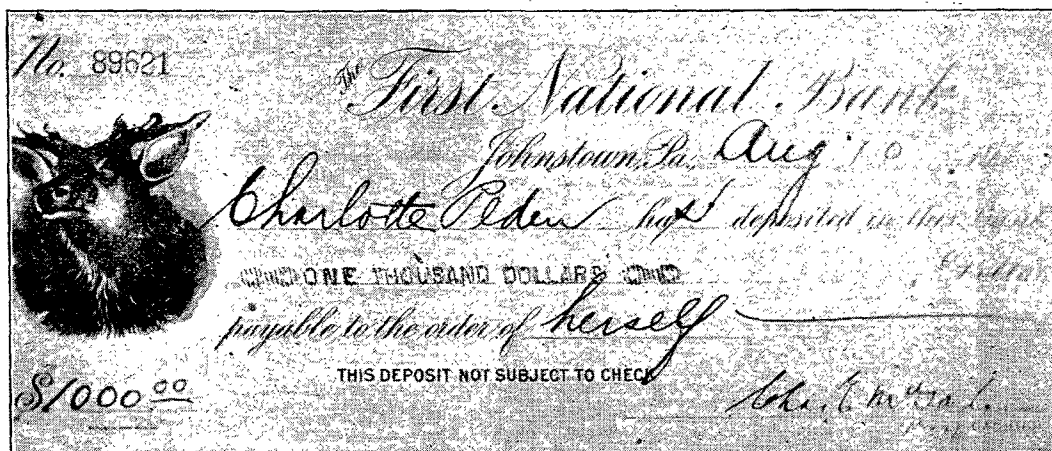 No. 89621
The First National Bank
Johnstown, Pa. Aug 10
Charlotte Peden has deposited in this Bank
ONE THOUSAND DOLLARS
payable to the order of herself
THIS DEPOSIT NOT SUBJECT TO CHECK
$1000.00